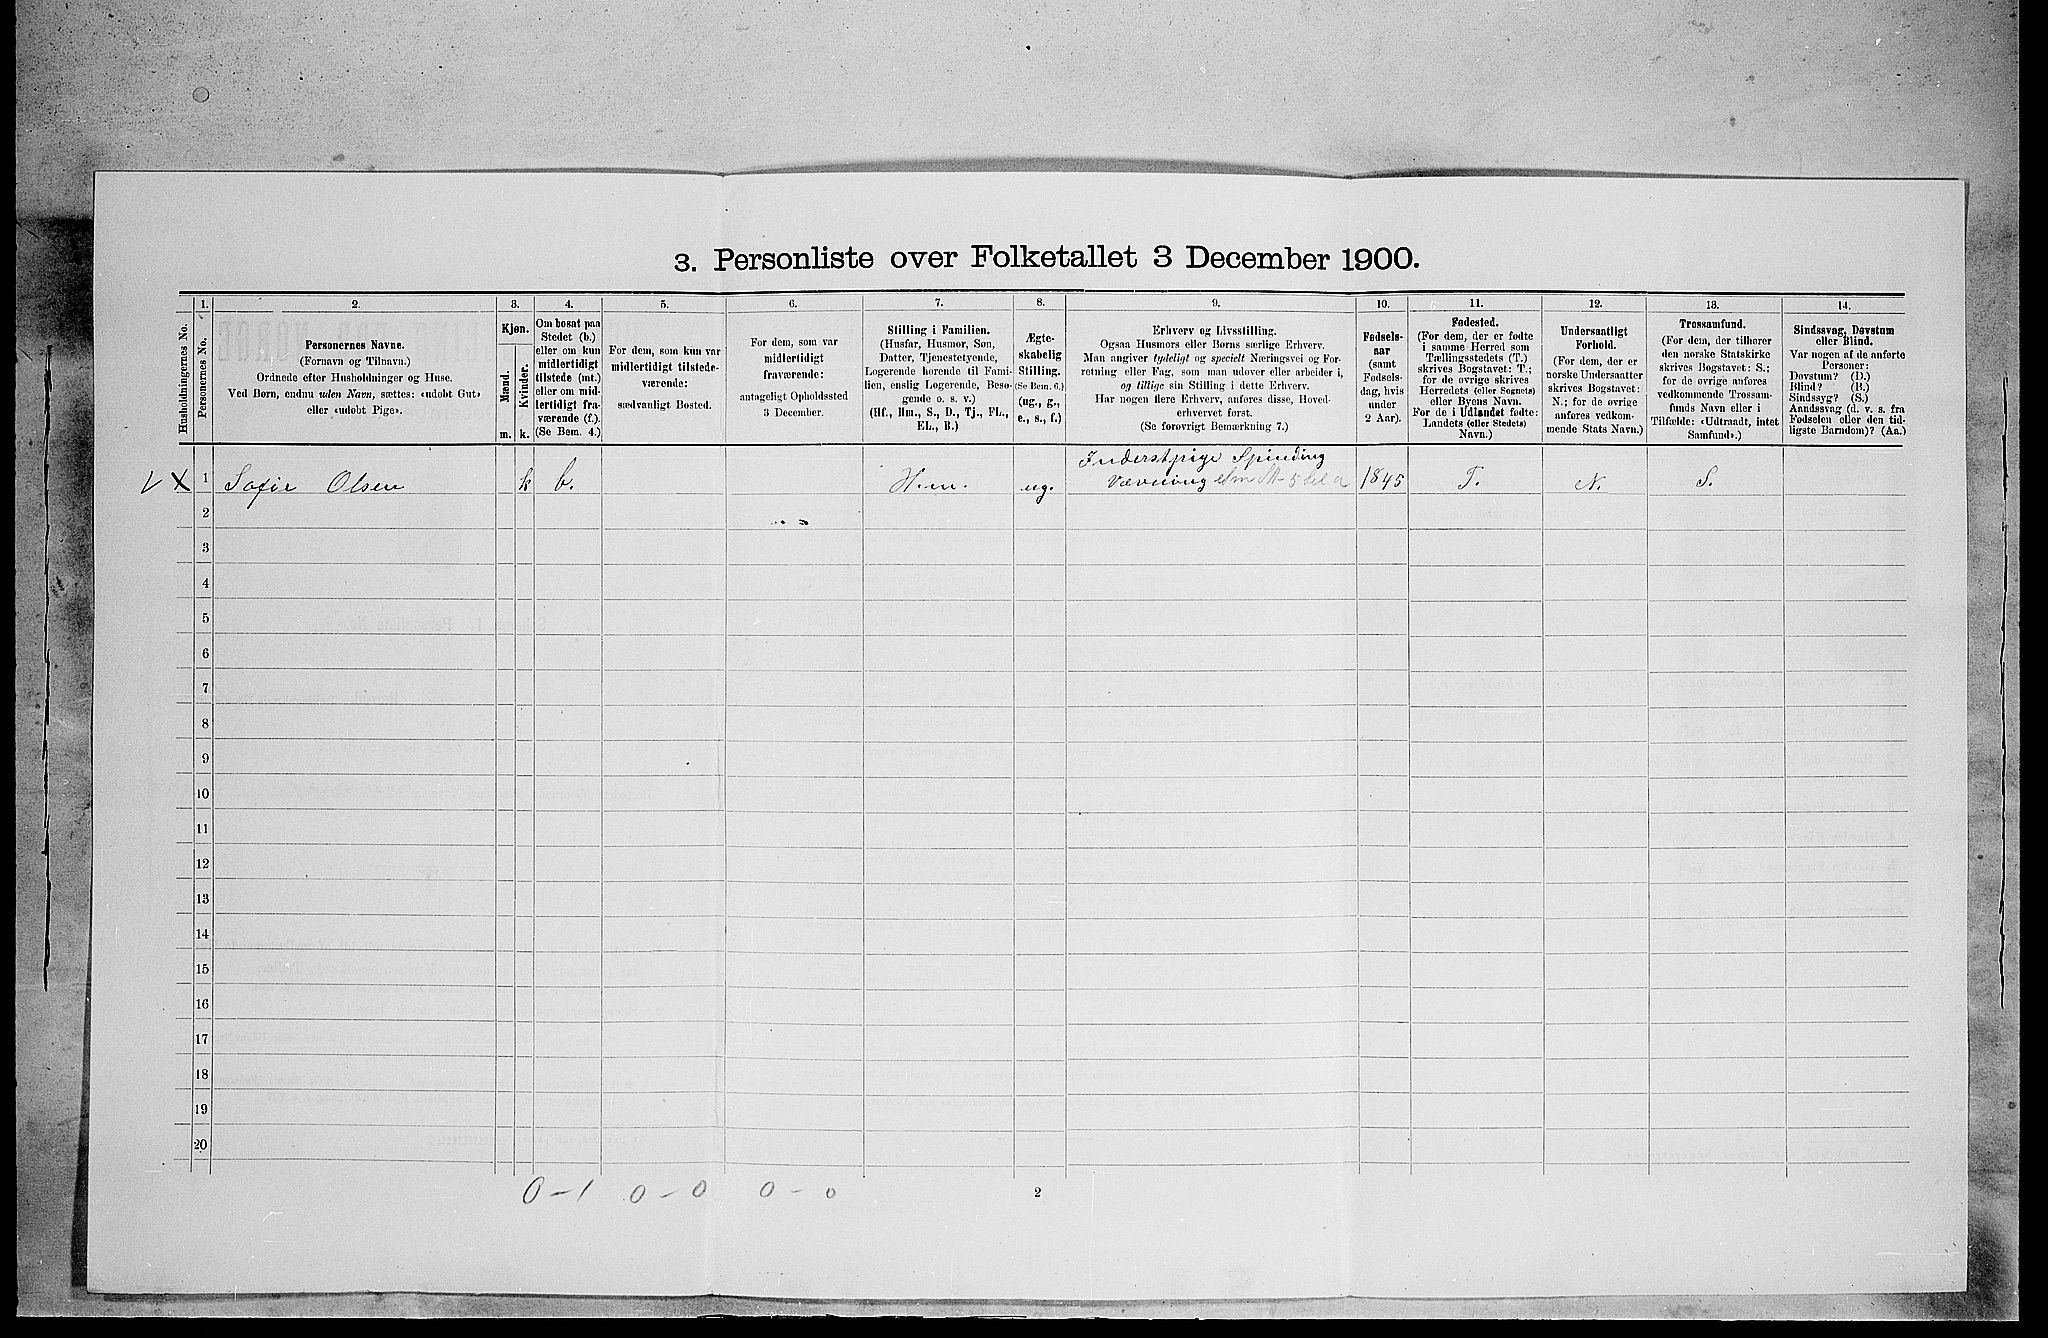 3. Personliste over Folketallet 3 December 1900.
Husholdningernes No.
1.
Personernes No.
2.
Personernes Navne.
(Fornavn og Tilnavn.)
Ordnede efter Husholdninger og Huse.
Ved Børn, endnu uden Navn, sættes: «udøbt Gut»
eller «udøbt Pige».
3.
Kjøn.
Mænd.
Kvinder.
m. k.
4.
Om bosat paa
Stedet (b.)
eller om kun
midlertidigt
tilstede (mt.)
eller om mid-
lertidigt fra-
værende (f.).
(Se Bem. 4.)
5.
For dem, som kun var
midlertidigt tilstede-
værende:
sædvanligt Bosted.
6.
For dem, som var
midlertidigt
fraværende:
antageligt Opholdssted
3 December.
7.
Stilling i Familien.
(Husfar, Husmor, Søn,
Datter, Tjenestetyende,
Logerende hørende til Fami-
lien, enslig Logerende, Besø-
gende o. s. v.)
(Hf., Hm., S., D., Tj., FL.,
EL., B.)
8.
Ægte-
skabelig
Stilling.
(Se Bem. 6.)
(ug., g.,
e., s., f.)
9.
Erhverv og Livsstilling.
Ogsaa Husmors eller Børns særlige Erhverv.
Man angiver tydeligt og specielt Næringsvei og For-
retning eller Fag, som man udøver eller arbeider i,
og tillige sin Stilling i dette Erhverv.
Har nogen flere Erhverv, anføres disse, Hoved-
erhvervet først.
(Se forøvrigt Bemærkning 7.)
10.
Fødsels-
aar
(samt
Fødsels-
dag, hvis
under
2 Aar).
11.
Fødested.
(For dem, der er fødte
i samme Herred som
Tællingsstedets (T.)
skrives Bogstavet: T.;
for de øvrige skrives
Herredets (eller Sognets)
eller Byens Navn.
For de i Udlandet fødte:
Landets (eller Stedets)
Navn.)
12.
Undersaatligt
Forhold.
(For dem, der er
norske Undersaatter
skrives Bogstavet:
N.; for de øvrige
anføres vedkom-
mende Stats Navn.)
13.
Trossamfund.
(For dem, der tilhører
den norske Statskirke
skrives Bogstavet: S.;
for de øvrige anføres
vedkommende Trossam-
funds Navn eller i
Tilfælde: «Udtraadt, intet
Samfund».)
14.
Sindssvag, Døvstum
eller Blind.
Var nogen af de anførte
Personer:
Døvstum? (D.)
Blind? (B.)
Sindssyg? (S.)
Aandssvag (d. v. s. fra
Fødselen eller den tid-
ligste Barndom)? (Aa.)
X 1 Sofie Olsen k b. Hm. ug. Inderstpige Spinding
Vævning 1845 T. N. S.
2
3
4
5
6
7
8
9
10
11
12
13
14
15
16
17
18
19
20
0-1 0-0 0-0
2